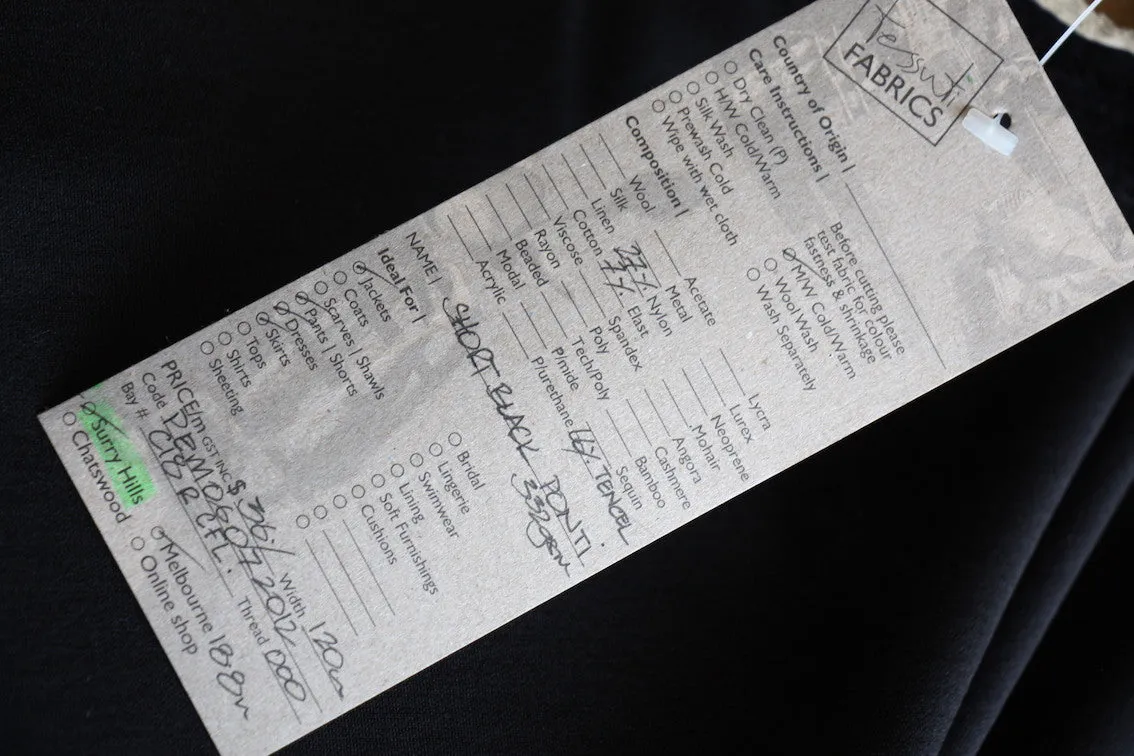 Tessuti
FABRICS
Country of Origin |
Care Instructions |
Dry Clean (P)
H/W Cold/Warm
Silk Wash
Prewash Cold
Wipe with wet cloth
Before cutting please
test fabric for colour
fastness & shrinkage
M/W Cold/Warm
Wool Wash
Wash Separately
Composition |
Wool
Silk
Linen
Cotton
Viscose
Rayon
Beaded
Modal
Acrylic
Acetate
Metal
27% Nylon
7% Elast
Spandex
Poly
Tech/Poly
P/mide
P/urethane
Lycra
Lurex
Neoprene
Mohair
Angora
Cashmere
Bamboo
Sequin
66% TENCEL
NAME | SHORT BLACK PONTI.
332gsm
Ideal For |
Jackets
Coats
Scarves | Shawls
Pants | Shorts
Dresses
Skirts
Tops
Shirts
Sheeting
Bridal
Lingerie
Swimwear
Lining
Soft Furnishings
Cushions
PRICE/m GST INC $ 36/- Width 120cm
Code Thread 000
Bay #
Surry Hills
Chatswood
Melbourne 18.8m
Online shop